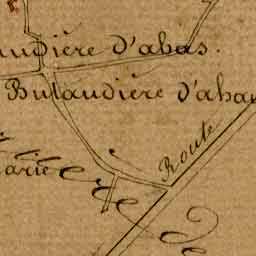 andière d'abas.
Bulandière d'aha
Route
arie
de